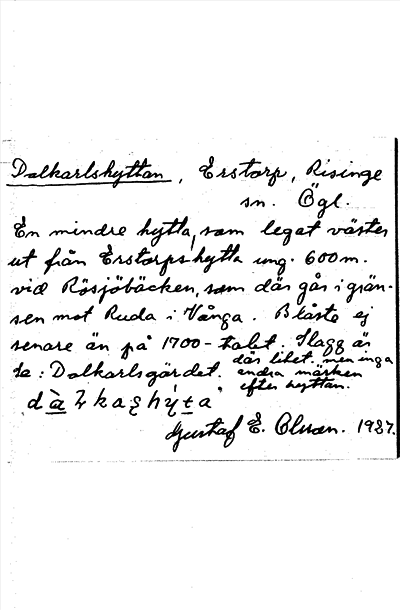 Dalkarlshyttan, Erstorp, Risinge
sn. Ögl.
En mindre hytta, som legat väster
ut från Erstorpshytta ung. 600 m.
vid Rösjöbäcken, som där går i grän-
sen mot Ruda i Vånga. Blåste ej
senare än på 1700-talet. Slagg är
där litet, men inga
se: Dalkarlsgärdet. andra märken
efter hyttan.
Gustaf E. Olsson. 1927.